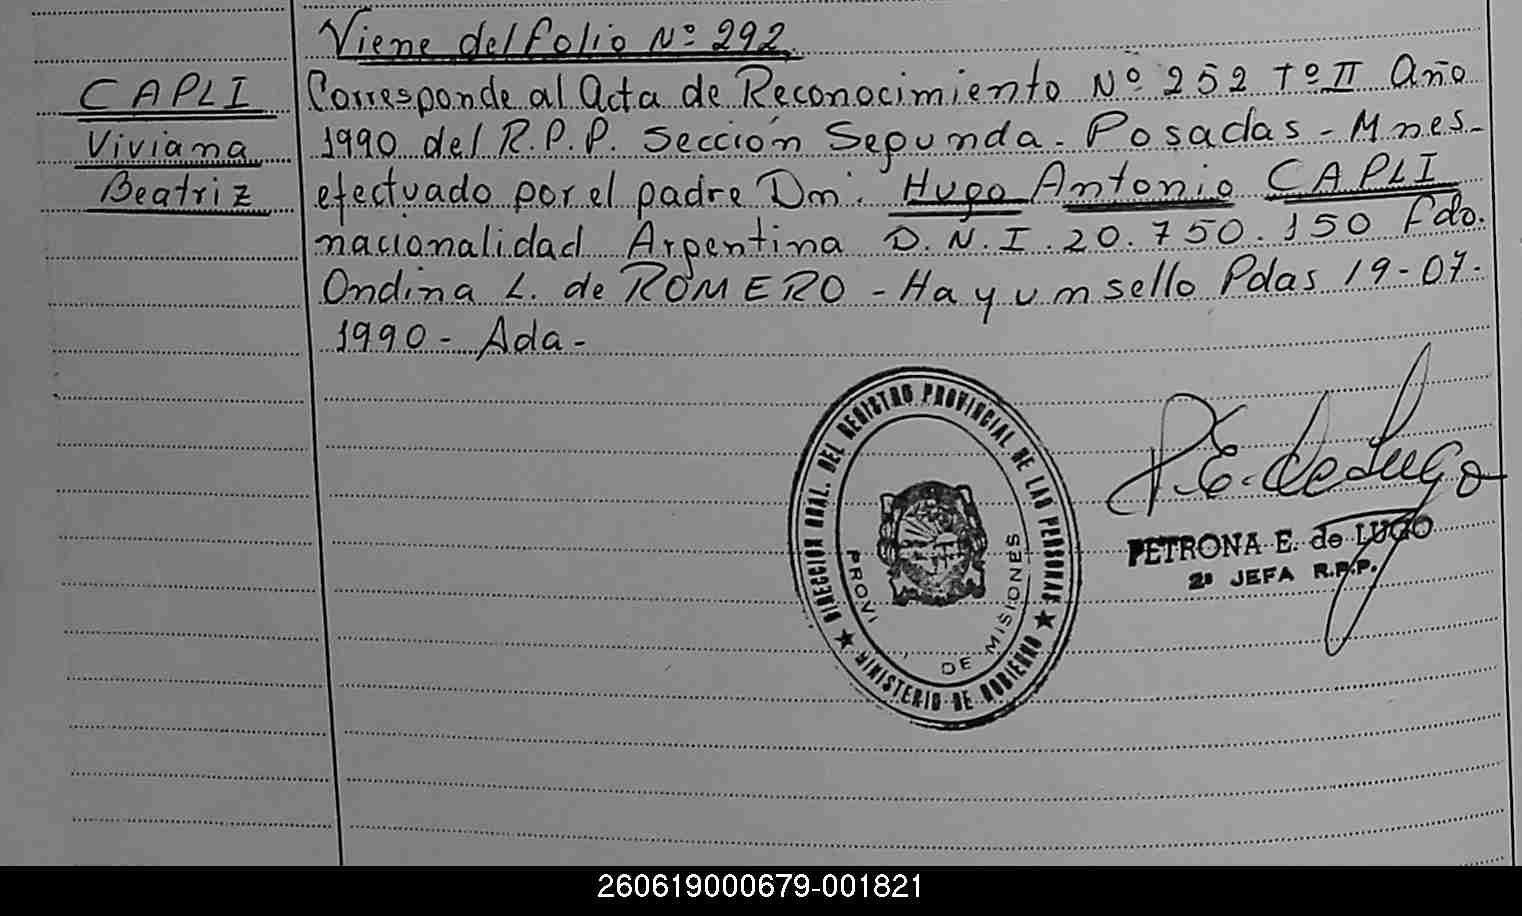 Viene del folio Nº 292
CAPLI
Viviana
Beatriz
Corresponde al Acta de Reconocimiento Nº 252 Tº II Año
1990 del R.P.P. Sección Segunda - Posadas - Mnes -
efectuado por el padre Dn. Hugo Antonio CAPLI
nacionalidad Argentina D.N.I. 20.750.150 Fdo.
Ondina L. de ROMERO - Hay un sello Pdas 19-07-
1990 - Ada -
DIRECCION GRAL. DEL REGISTRO PROVINCIAL DE LAS PERSONAS
★ MINISTERIO DE GOBIERNO ★
PROVI
DE MISIONES
P.E. de Lugo
PETRONA E. de LUGO
2ª JEFA R.P.P.
260619000679-001821